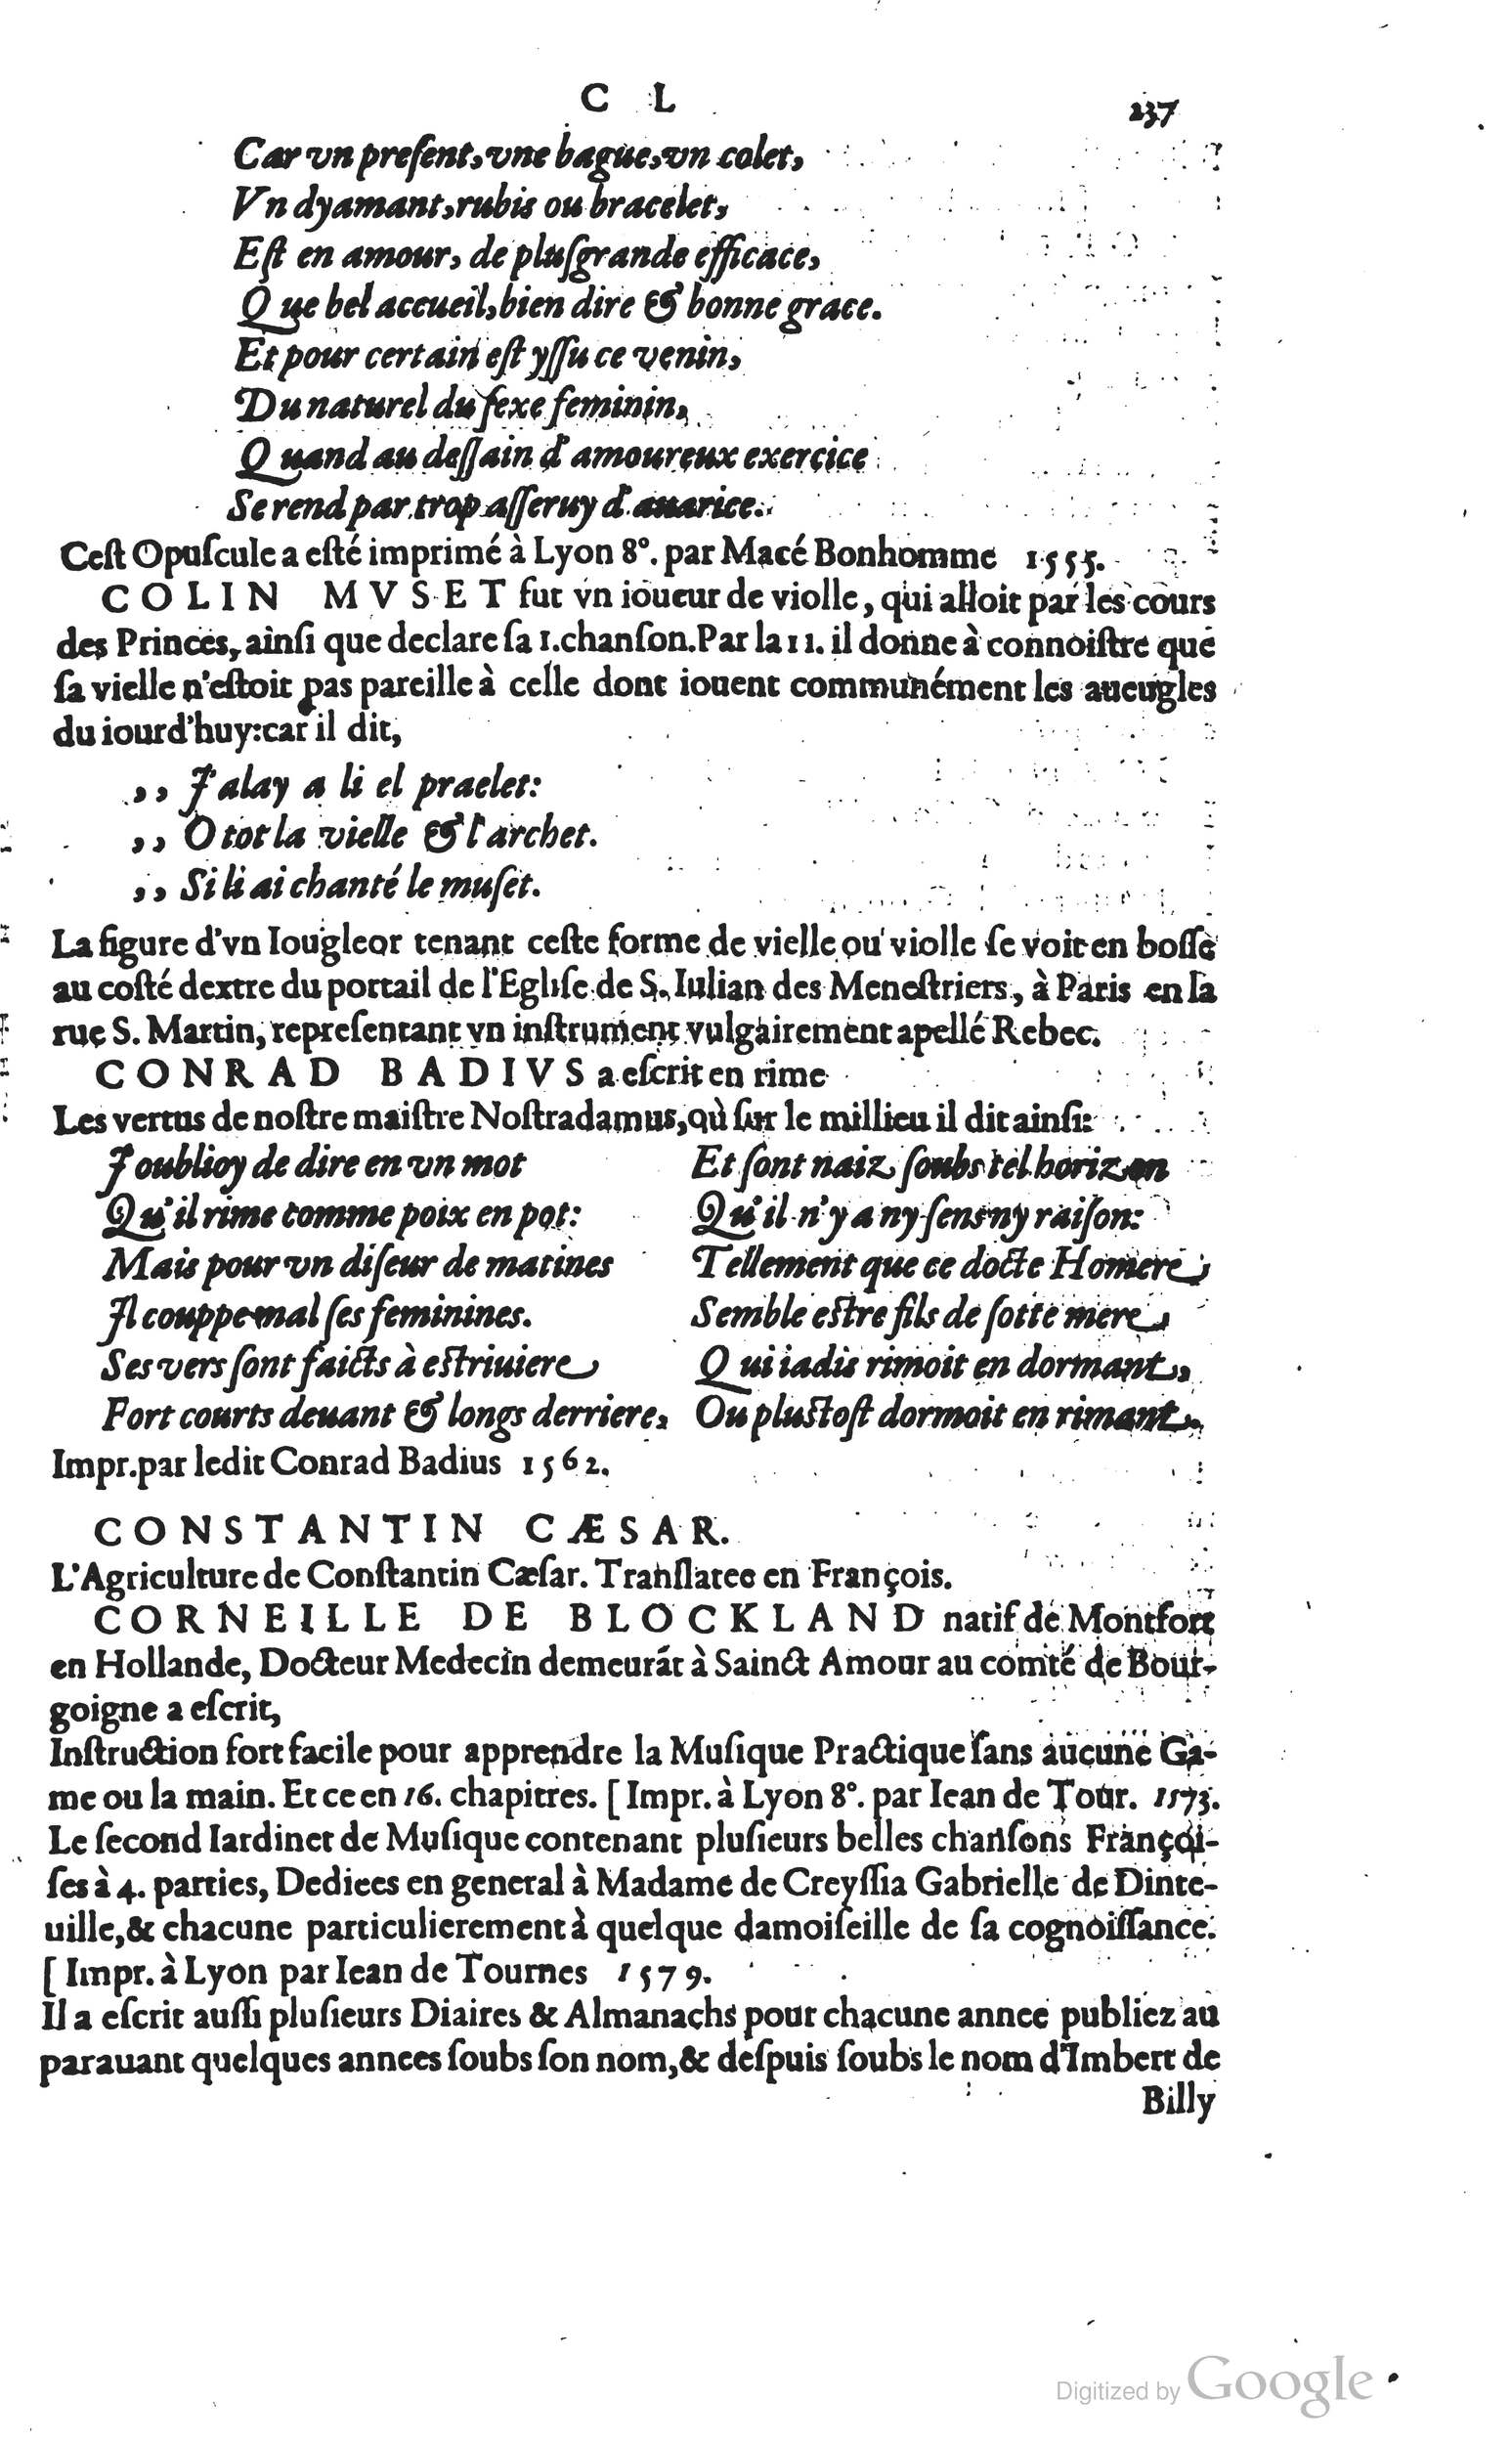 C L 237
Car vn preſent, vne bague, vn colet,
Vn dyamant, rubis ou bracelet,
Eſt en amour, de pluſgrande efficace,
Que bel accueil, bien dire & bonne grace.
Et pour certain eſt yſſu ce venin,
Du naturel du ſexe feminin,
Quand au deſſain d'amoureux exercice
Se rend par trop aſſeruy d'auarice.
Ceſt Opuſcule a eſté imprimé à Lyon 8°. par Macé Bonhomme 1555.
COLIN MVSET fut vn ioueur de violle, qui alloit par les cours
des Princes, ainſi que declare ſa 1. chanſon. Par la 11. il donne à connoiſtre que
ſa vielle n'eſtoit pas pareille à celle dont iouent communément les aueugles
du iourd'huy: car il dit,
,, J'alay a li el praelet:
,, O tot la vielle & l'archet.
,, Si li ai chanté le muſet.
La figure d'vn Iougleor tenant ceſte forme de vielle ou violle ſe voit en boſſe
au coſté dextre du portail de l'Egliſe de S. Iulian des Meneſtriers, à Paris en la
rue S. Martin, repreſentant vn inſtrument vulgairement apellé Rebec.
CONRAD BADIVS a eſcrit en rime
Les vertus de noſtre maiſtre Noſtradamus, où ſur le millieu il dit ainſi:
J'oublioy de dire en vn mot
Qu'il rime comme poix en pot:
Mais pour vn diſeur de matines
Il couppe mal ſes feminines.
Ses vers ſont faicts à eſtriuiere
Fort courts deuant & longs derriere,
Et ſont naiz ſoubs tel horizon
Qu'il n'y a ny ſens ny raiſon:
Tellement que ce docte Homere,
Semble eſtre fils de ſotte mere,
Qui iadis rimoit en dormant,
Ou pluſtoſt dormoit en rimant.
Impr. par ledit Conrad Badius 1562.
CONSTANTIN CÆSAR.
L'Agriculture de Conſtantin Cæſar. Tranſlatee en François.
CORNEILLE DE BLOCKLAND natif de Montfort
en Hollande, Docteur Medecin demeurãt à Sainct Amour au comté de Bour-
goigne a eſcrit,
Inſtruction fort facile pour apprendre la Muſique Practique ſans aucune Ga-
me ou la main. Et ce en 16. chapitres. [Impr. à Lyon 8°. par Iean de Tour. 1573.
Le ſecond Iardinet de Muſique contenant pluſieurs belles chanſons Françoi-
ſes à 4. parties, Dediees en general à Madame de Creyſſia Gabrielle de Dinte-
uille, & chacune particulierement à quelque damoiſeille de ſa cognoiſſance.
[Impr. à Lyon par Iean de Tournes 1579.
Il a eſcrit auſſi pluſieurs Diaires & Almanachs pour chacune annee publiez au
parauant quelques annees ſoubs ſon nom, & deſpuis ſoubs le nom d'Imbert de
Billy
Digitized by Google